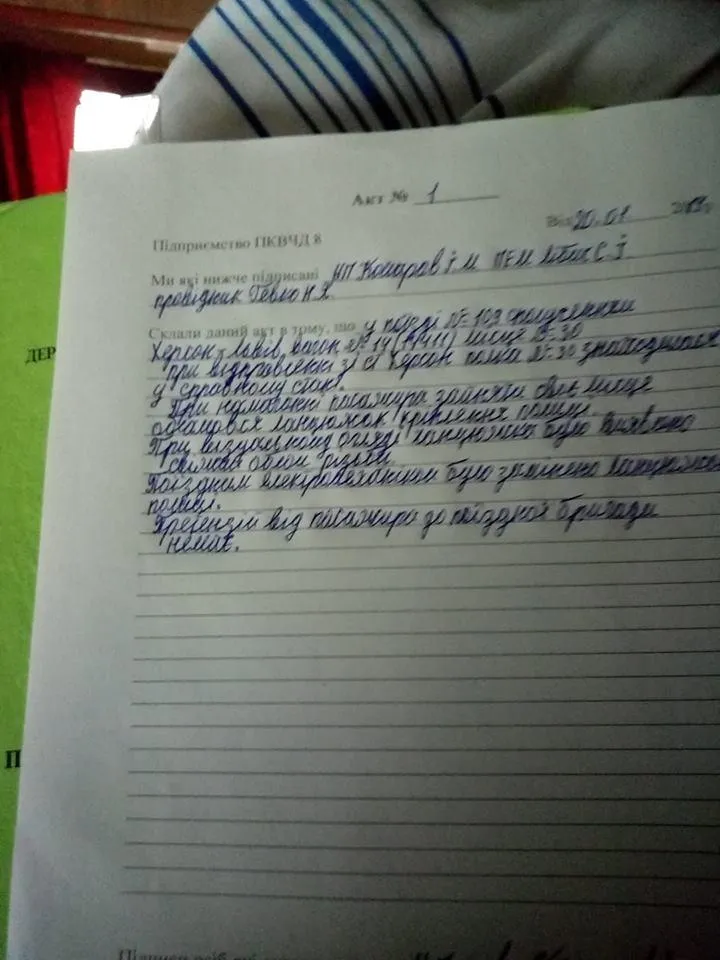 Акт № 1
Від 20.01
Підприємство ПКВЧД 8
Ми які нижче підписані НП Комаров І.М ПЕМ С.Й
провідник Н.Я.
Склали даний акт в тому, що у поїзді № 109 сполученням
Херсон-Львів, вагон № 14 місце № 30
при відправленні зі ст Херсон полка № 30 знаходилася
у справному стані.
При намаганні пасажира зайняти своє місце
обламався ланцюжок кріплення полиці.
При візуальному огляді ланцюжка було виявлено
облом різьби
Поїздним електромеханіком було замінено ланцюжок
полиці.
Претензій від пасажира до поїздної бригади
немає.
ДЕР
П
Підписи осіб які